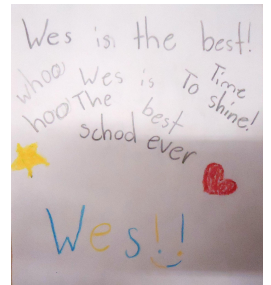 Wes is the best!
whoo
hoo
Wes is
The best
school ever
Time
To shine!
Wes!!